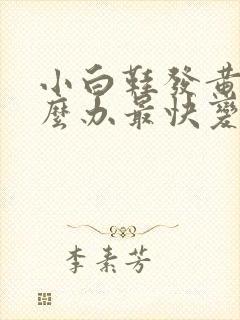 小白鞋發黃
麼办最快變
李素芳